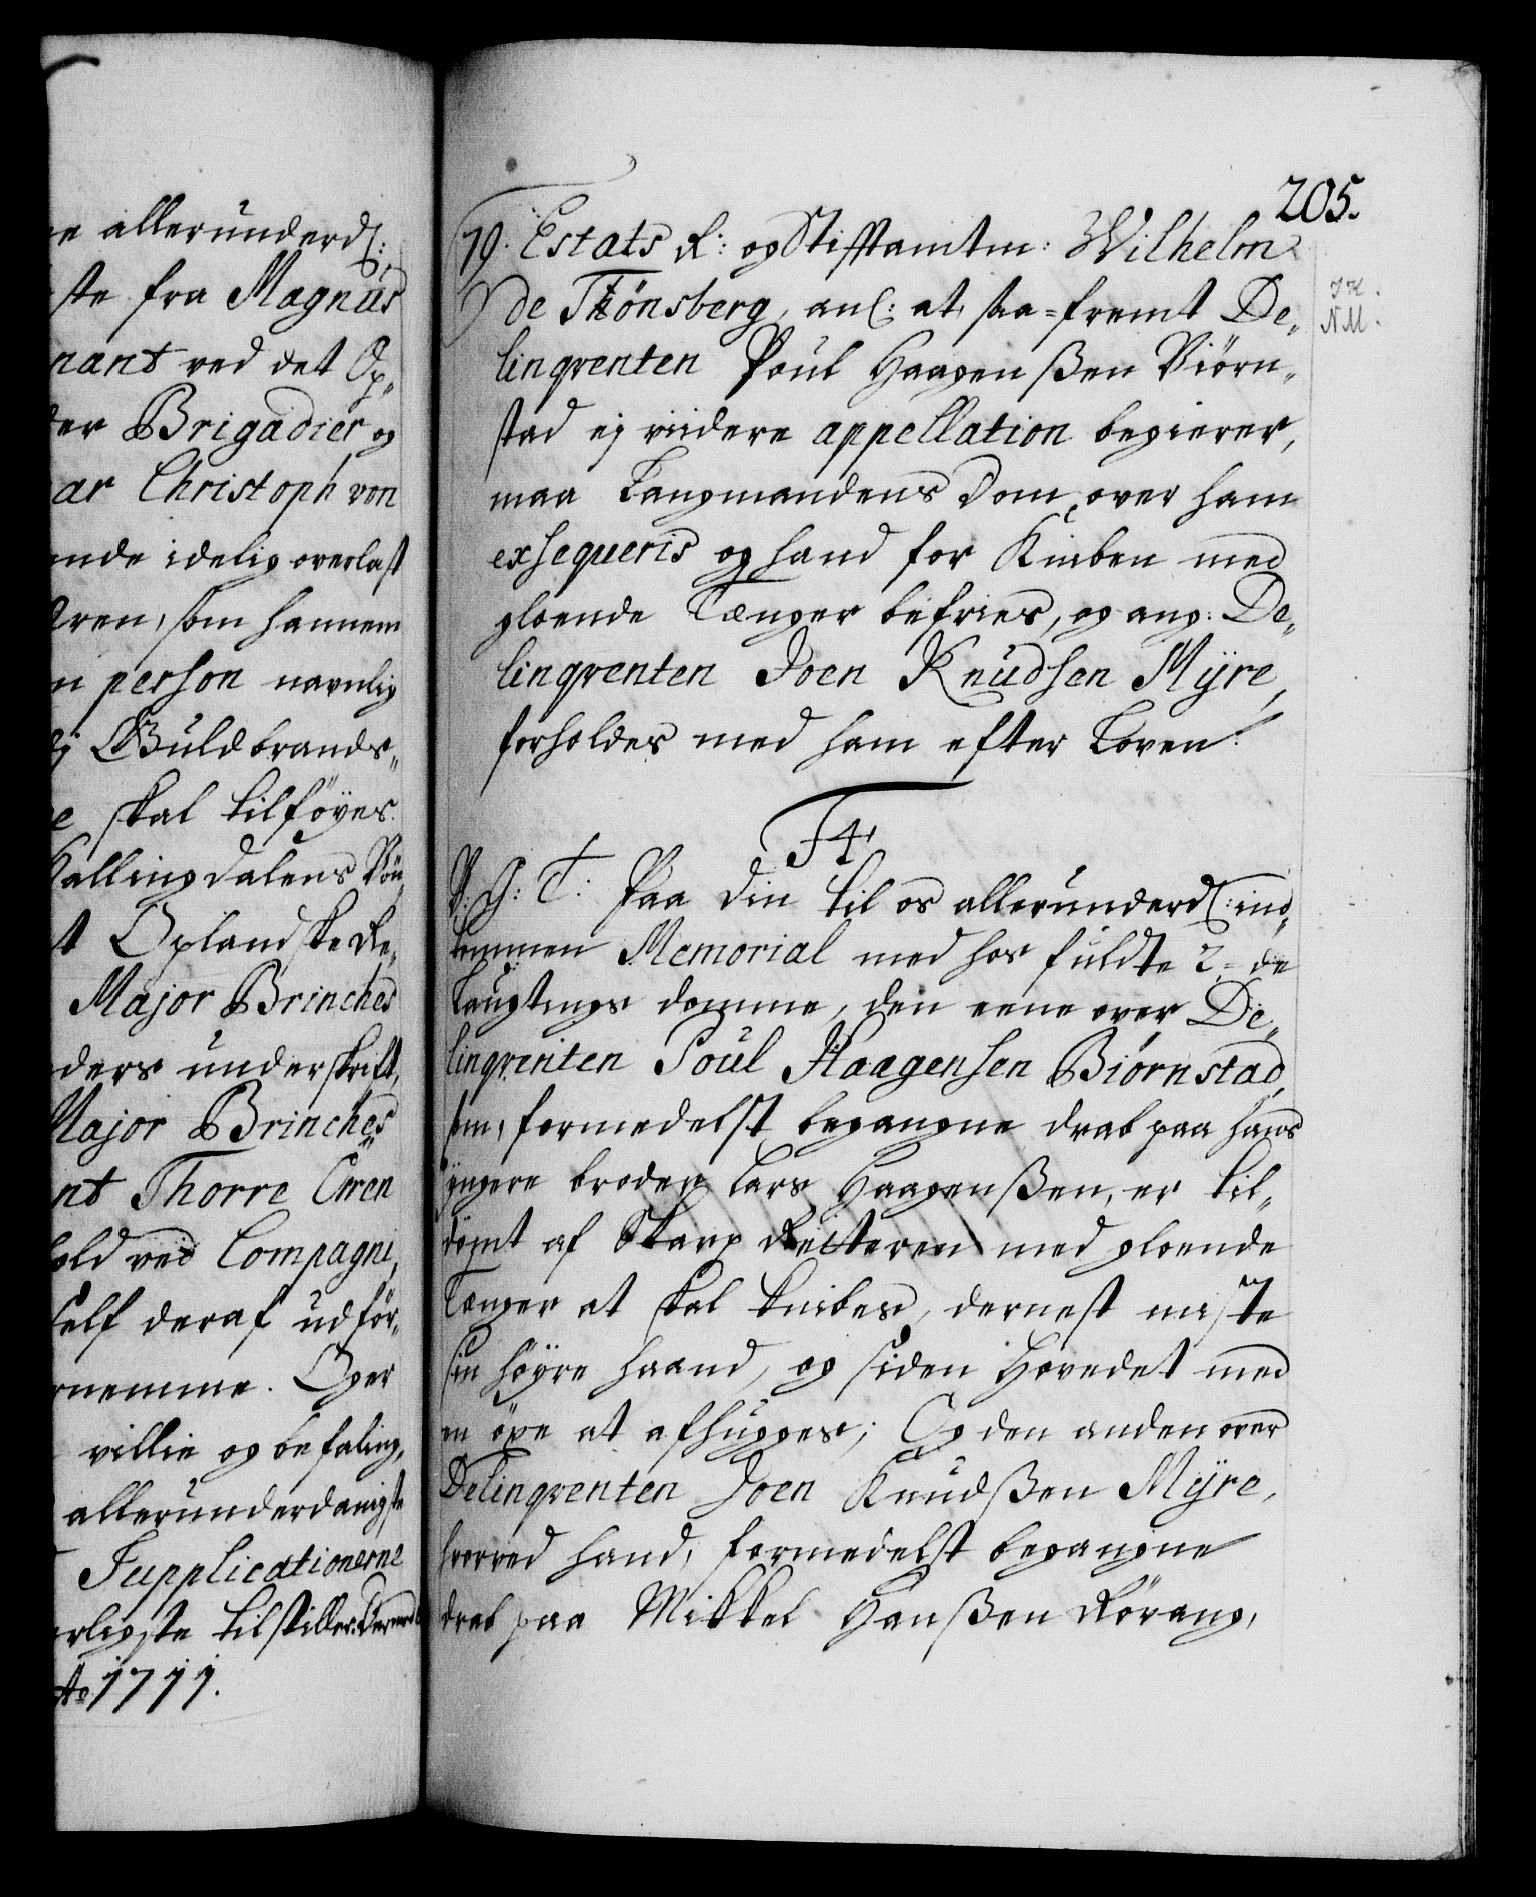 e allerunderd:
ste fra Magnus
nant ved det Op„
der Brigadier og
ar Christoph von
ende idelig overlast
dren, som hannem
en person navnlig
Guldbrands„
e skal tilföyes.
Hallingdalens
st Oplandske Re„
Major Brinches
ders underskrift,
Major Brinches
nt Thorre Orren
hold ved Compagni,
self deraf udför„
rnemme. Oger
villie og befaling,
allerunderdanigste
Supplicationerne
rligste tilstilles.
Ao 1711.
205.
79. Estats R: og Stifftamtm: Wilhelm
de Tonsberg, anl: at, saa=fremt De„
linqventen Poul Haagenßen Biörn„
stad ej viidere appellation begierer,
maa Laugmandens Dom over ham
exseqveris og hand for Kniben med
gloende Tænger befries, og ang: De„
linqventen Joen Knudsen Mÿre,
forholdes med ham efter Loven.
F4.
V: G: T: Paa din til os allerunderd: ind„
kommen Memorial med hos fuldte 2=de
Laugtings domme, den eene over De„
linqventen Poul Haagensen Biørnstad,
som, formedelst begangne drab paa hans
yngere broder Lars Haagenßen, er til„
dömt af Skarp Retteren med gloende
Tænger at skal knibes, dernest miste
sin höyre haand, og siden Hovedet med
en öxe at afhugges; Og den anden over
Delinqventen Joen Knudßen Mÿre,
hvorved hand, formedelst begangne
drab paa Mikkel Hanßen Rörang,